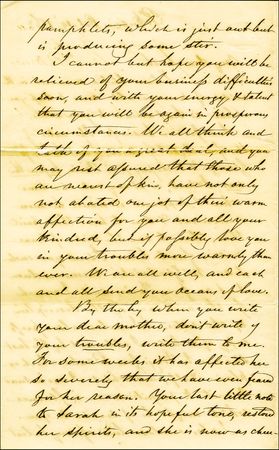 pamphlets, which is just out but
is producing some stir.
I cannot but hope you will be
relieved of your business difficulties
soon, and with your energy & talent
that you will be again in prosperous
circumstances. We all think and
talk of you a great deal, and you
may rest assured that those who
are nearest of kin, have not only
not abated one jot of their warm
affection for you and all your
kindred, but if possibly love you
in your troubles more warmly than
ever. We are all well, and each
and all send you oceans of love.
By the by, when you write
your dear mother, don't write of
your troubles, write them to me.
For some weeks it has affected her
so severely that we have even fear
for her reason. Your last little note
to Sarah in its hopeful tone, restored
her spirits, and she is now as cheer-